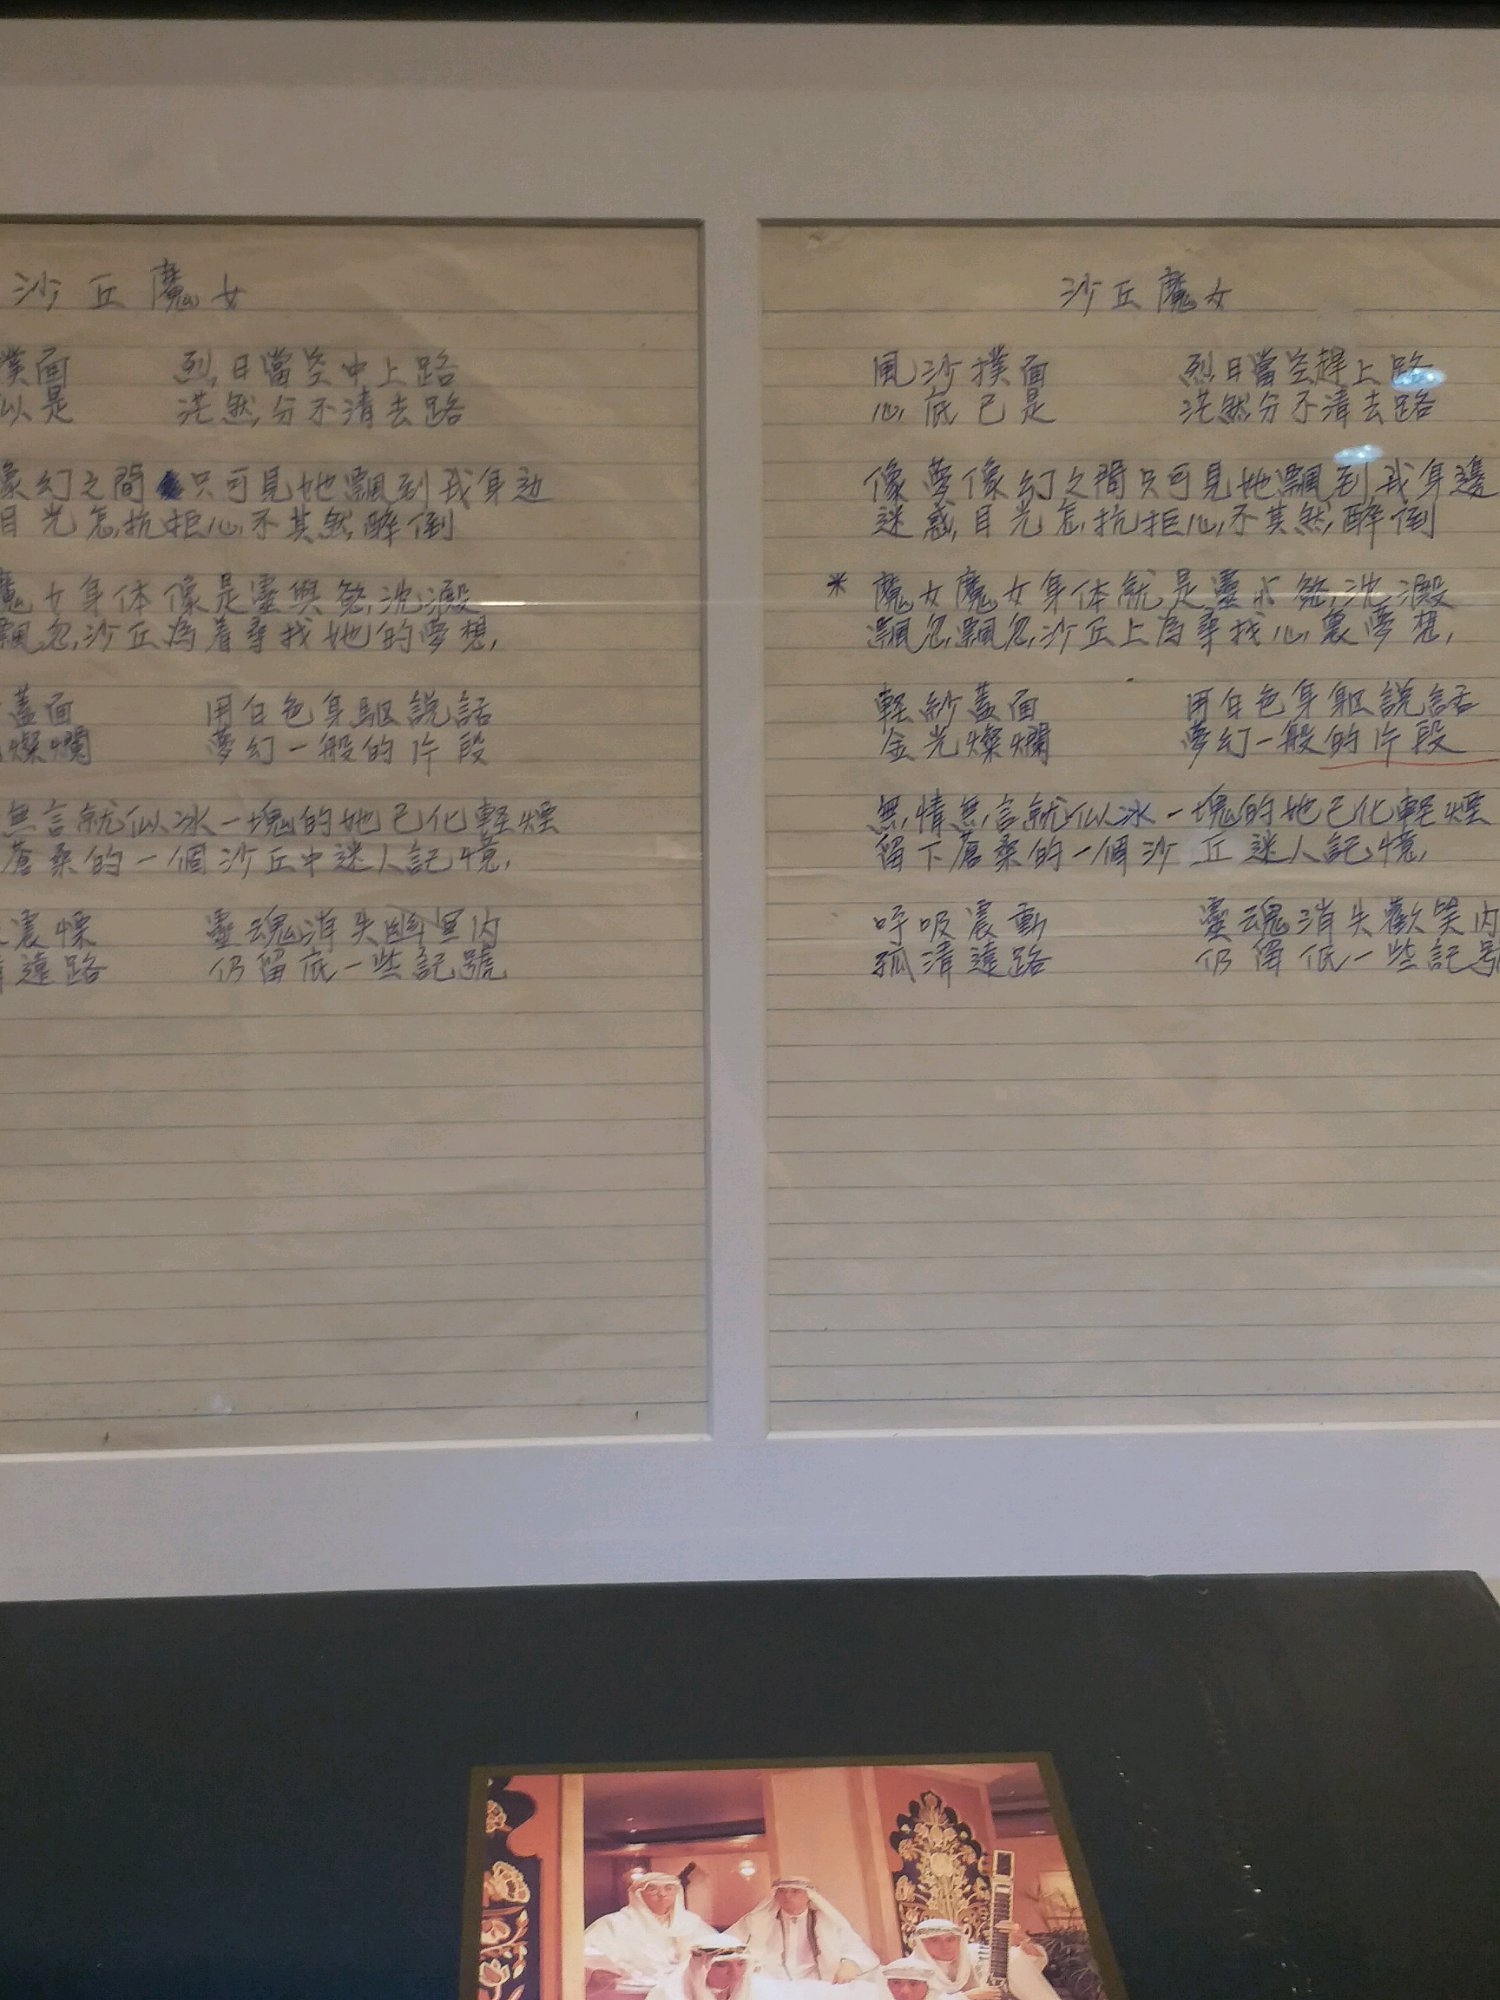 沙丘魔女
撲面 烈日當空中上路
以是 茫然分不清去路
像幻之間 只可見她飄到我身边
目光怎抗拒心不其然醉倒
魔女身体像是靈與慾沈澱
飄忽沙丘為着尋找她的夢想
蓋面 用白色身軀說話
燦爛 夢幻一般的片段
無言就似冰一塊的她已化輕煙
蒼桑的一個沙丘中迷人記憶
震慄 靈魂消失幽冥內
清遠路 仍留底一些記號
沙丘魔女
風沙撲面 烈日當空趕上路
心底已是 茫然分不清去路
像夢像幻之間只可見她飄到我身邊
迷惑目光怎抗拒心不其然醉倒
* 魔女魔女身体就是靈水慾沈澱
飄忽飄忽沙丘上為尋找心裏夢想
輕紗蓋面 用白色身軀說話
金光燦爛 夢幻一般的片段
無情無言就似冰一塊的她已化輕煙
留下蒼桑的一個沙丘迷人記憶
呼吸震動 靈魂消失歡笑內
孤清遠路 仍留低一些記號